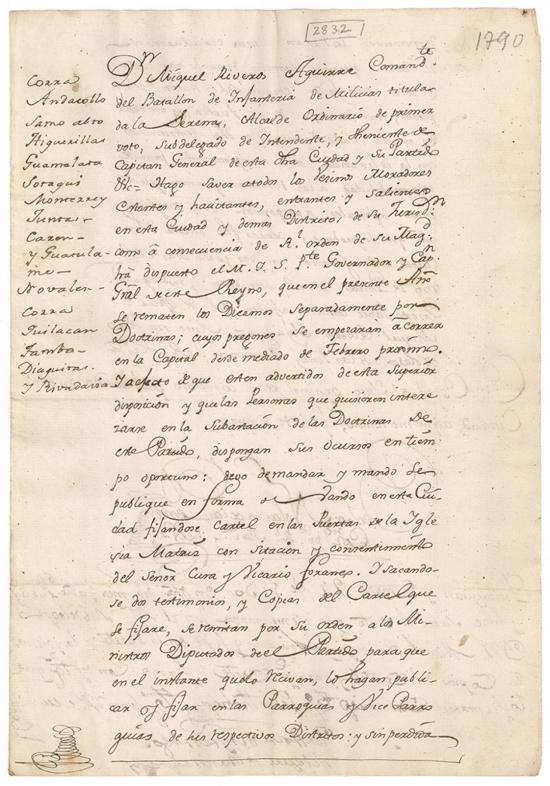 2832
1790
Corra
Andacollo
Samo alto
Higuerillas
Guamalata
Sotaqui
Monterrey
Juntas
Caren
y Guatula-
me-
Novalen-
Corra
Quilacan
Tambo-
Diaguitas-
Y Rivadavia
Dn. Miguel Riveros Aguirre Comandte
del Batallon de Infanteria de Milicias titula-
da la Serena, Alcalde Ordinario de primer
voto, Subdelegado de Intendente, y theniente de
Capitan General de esta dha Ciudad y su Partido
&c- Hago saver atodos los Vesinos Moradores
Estantes y havitantes, entrantes y salientes
en esta Ciudad y demas Distritos, de su Jurisdn
como á consecuencia de Rl. orden de su Magd
há dispuesto el M. I. S. Pte Governador y Capn
Gral de este Reyno, que en el presente Año
se rematen los Diezmos separadamente por
Doctrinas; cuyos pregones se empezaran á correr
en la Capital desde mediado de Febrero proximo.
Y a efecto de que esten advertidos de esta Superior
disposicion y que las Personas que quisieren intere
zarse en la Subastacion de las Doctrinas de
este Partido, dispongan sus ocursos en tiem
po oportuno: devo demandar y mando se
publique en forma de vando en esta Ciu
dad fijandose Cartel en las Puertas de la Igle
sia Matris con sitacion y consentimiento
del Señor Cura y Vicario foraneo. Y sacando-
se dos testimonios, y Copias del Cartel que
se fijare, se remitan por su orden a los Mi-
nistros Diputados de el Partido para que
en el instante qe lo resivan, lo hagan publi-
car y fijar en las Parroquias y Vice Parro
quias de sus respectivos Distritos: y sin perdida